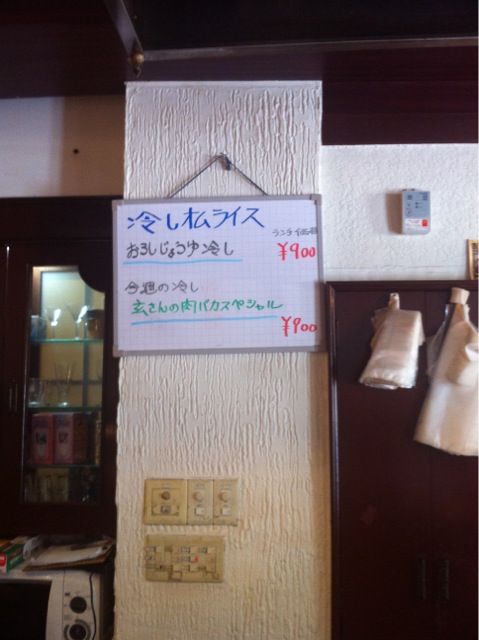 冷し松ライス
ランチ価格
おろしじょうゆ冷し
¥900
今週の冷し
玄さんの肉バカスペシャル
¥900